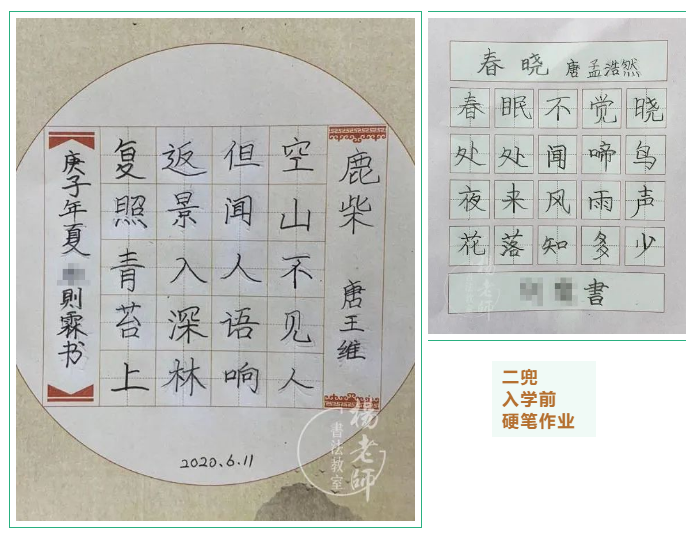 鹿柴 唐王维
空山不见人
但闻人语响
返景入深林
复照青苔上
庚子年夏 則霖书
2020.6.11
楊老師
書法教室
春晓 唐 孟浩然
春眠不觉晓
处处闻啼鸟
夜来风雨声
花落知多少
書
二兜
入学前
硬笔作业